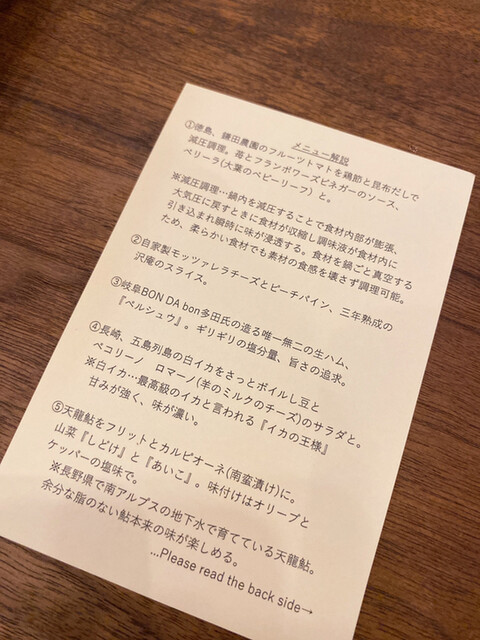 メニュー解説
①徳島、鎌田農園のフルーツトマトを鶏節と昆布だしで
減圧調理。苺とフランボワーズビネガーのソース、
ベリーラ(大葉のベビーリーフ)と。
※減圧調理…鍋内を減圧することで食材内部が膨張、
大気圧に戻すときに食材が収縮し調味液が食材内に
引き込まれ瞬時に味が浸透する。食材を鍋ごと真空する
ため、柔らかい食材でも素材の食感を壊さず調理可能。
②自家製モッツァレラチーズとピーチパイン、三年熟成の
沢庵のスライス。
③岐阜BON DA bon多田氏の造る唯一無二の生ハム、
『ペルシュウ』。ギリギリの塩分量、旨さの追求。
④長崎、五島列島の白イカをさっとボイルし豆と
ペコリーノ ロマーノ(羊のミルクのチーズ)のサラダと。
※白イカ…最高級のイカと言われる『イカの王様』
甘みが強く、味が濃い。
⑤天龍鮎をフリットとカルピオーネ(南蛮漬け)に。
山菜『しどけ』と『あいこ』。味付けはオリーブと
ケッパーの塩味で。
※長野県で南アルプスの地下水で育てている天龍鮎。
余分な脂のない鮎本来の味が楽しめる。
...Please read the back side→